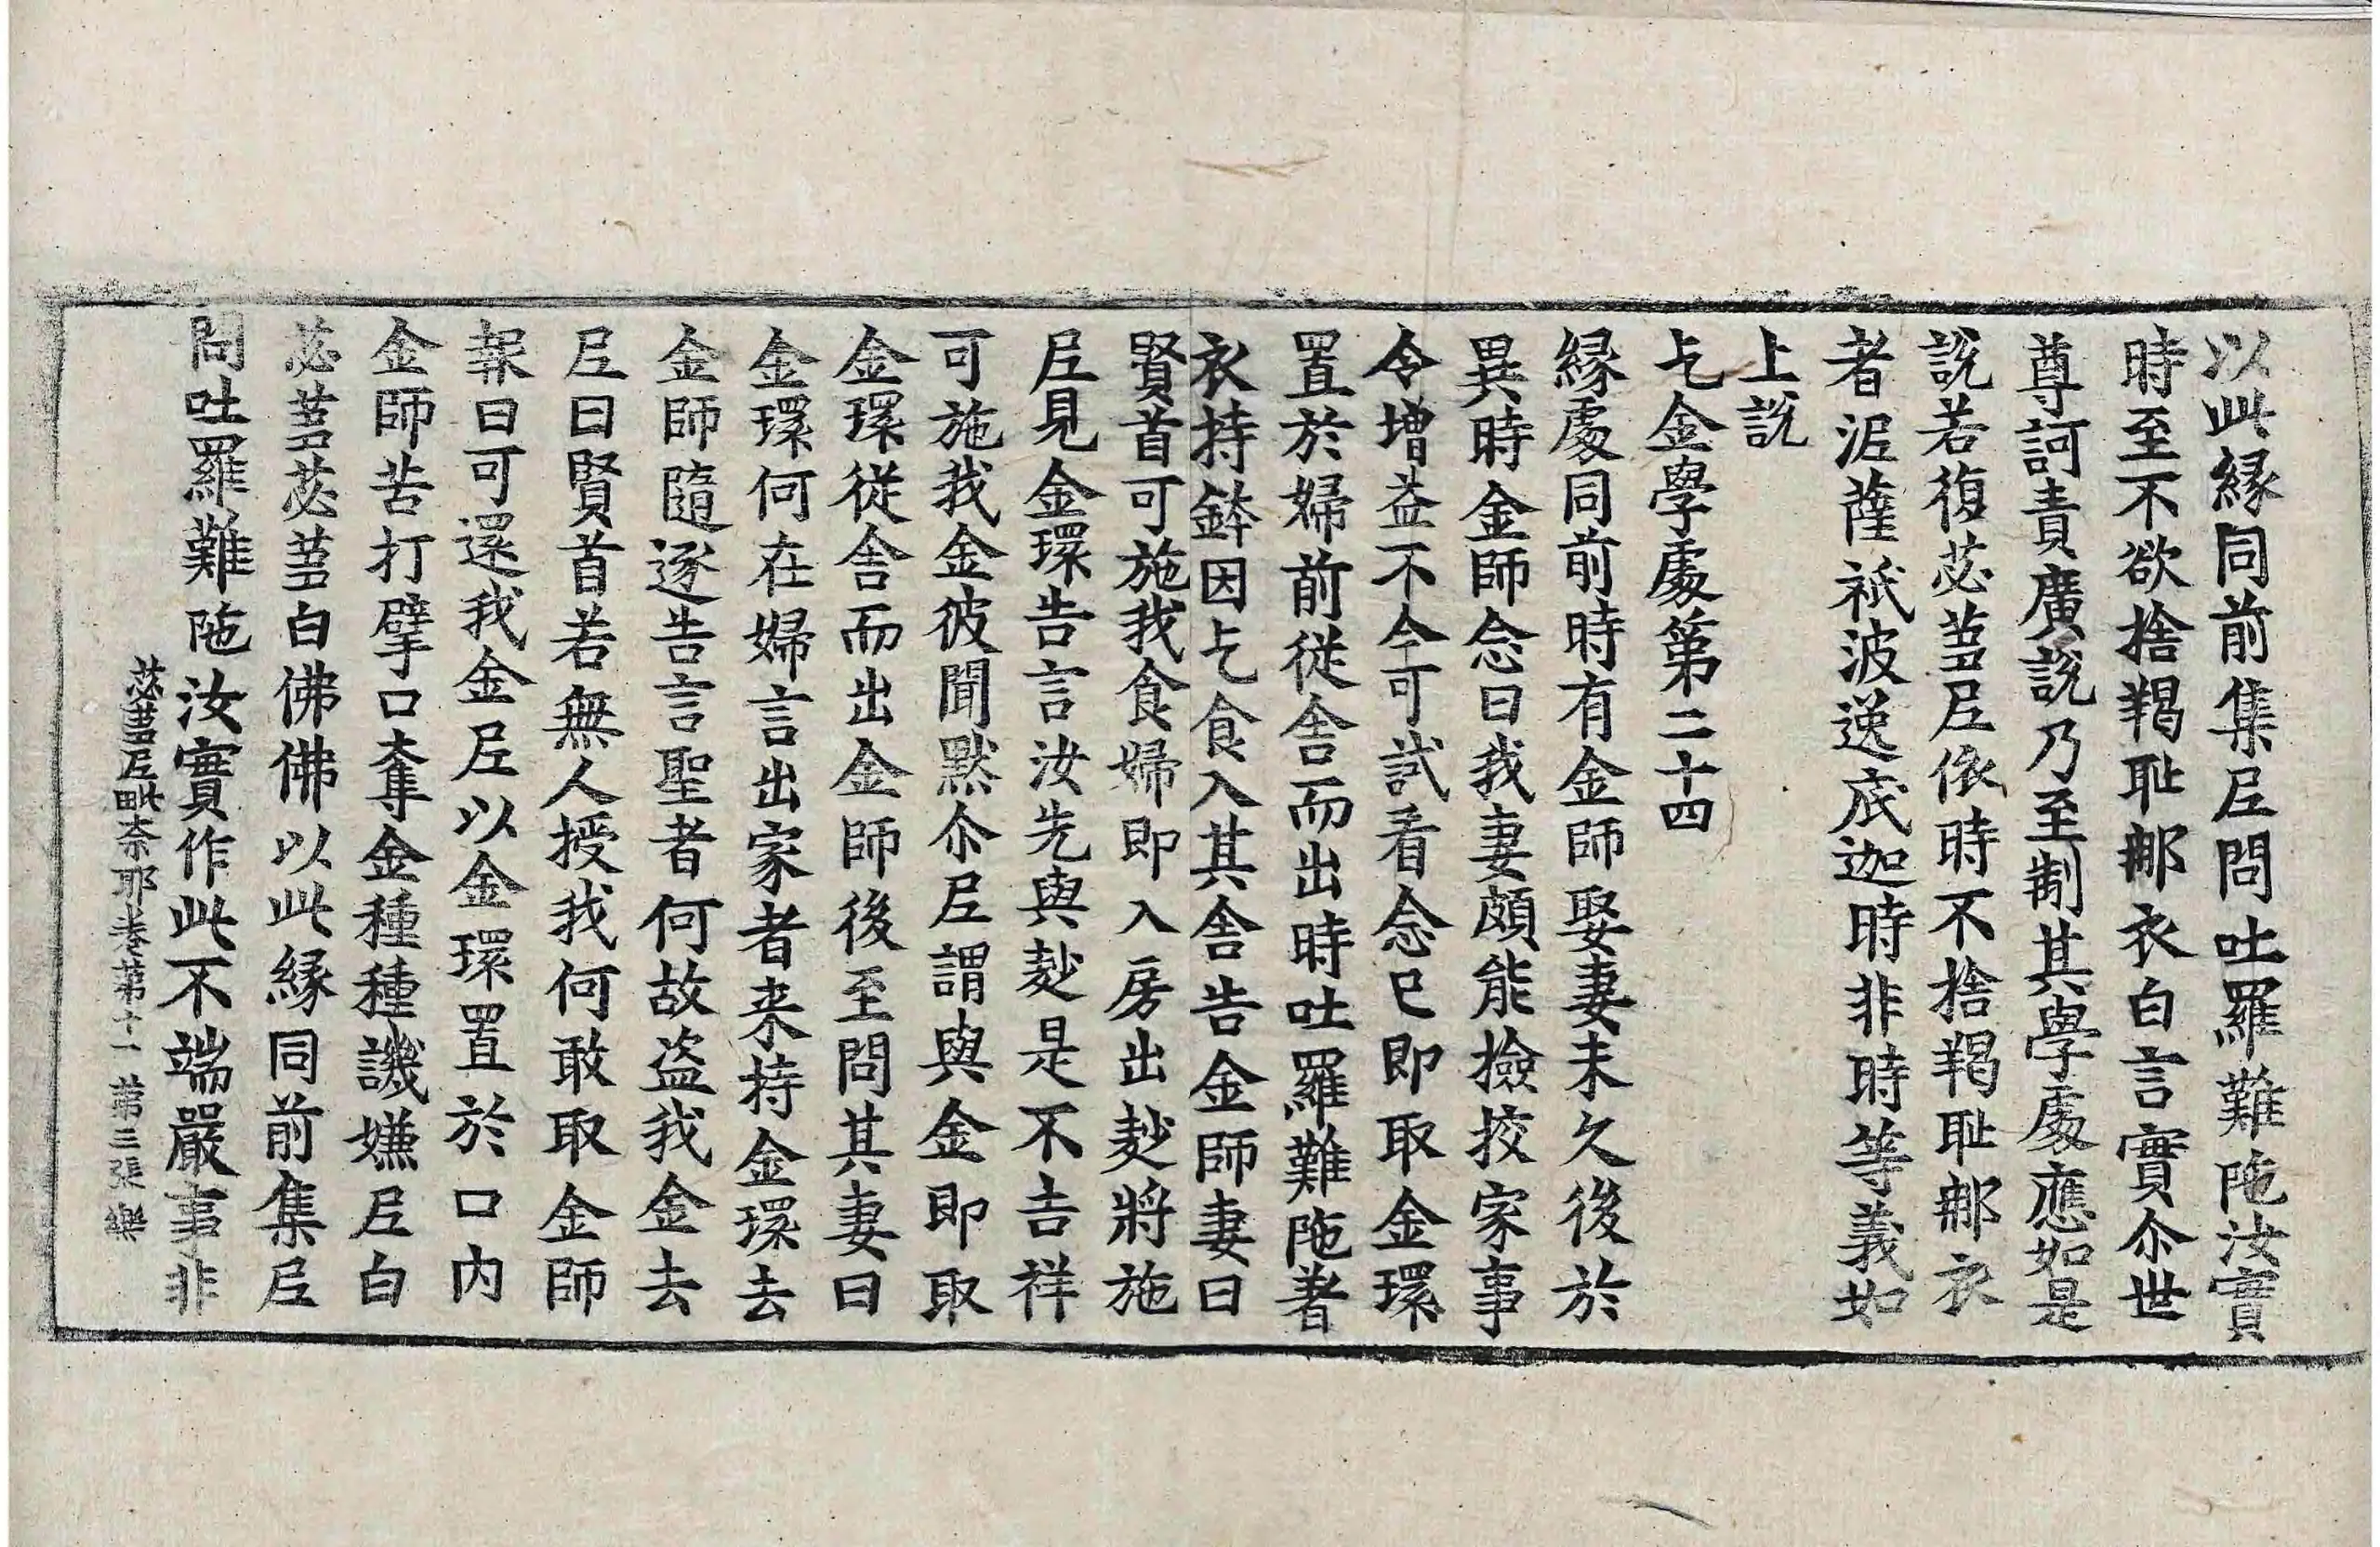 以此縁同前集𡰱問吐羅難陁汝實
時至不欲捨羯耻郍衣白言實尒世
尊訶責廣說乃至制其學處應如是
說若復苾蒭𡰱依時不捨羯耻郍衣
者泥薩祇波逸底迦時非時等義如
上說
乞金學處第二十四
縁處同前時有金師娶妻未久後於
異時金師念曰我妻頗能撿挍家事
令增益不今可試看念已即取金環
置於婦前從舍而出時吐羅難陁著
衣持鉢因乞食入其舍告金師妻曰
賢首可施我食婦即入房出麨將施
𡰱見金環告言汝先與麨是不吉祥
可施我金彼聞默尒𡰱謂與金即取
金環從舍而出金師後至問其妻曰
金環何在婦言出家者来持金環去
金師隨逐告言聖者何故盗我金去
𡰱曰賢首若無人授我何敢取金師
報曰可還我金𡰱以金環置於口内
金師苦打擘口奪金種種譏嫌𡰱白
苾蒭苾蒭白佛佛以此縁同前集𡰱
問吐羅難陁汝實作此不端嚴事非
苾蒭𡰱毗柰耶卷第十一 第三張 樂